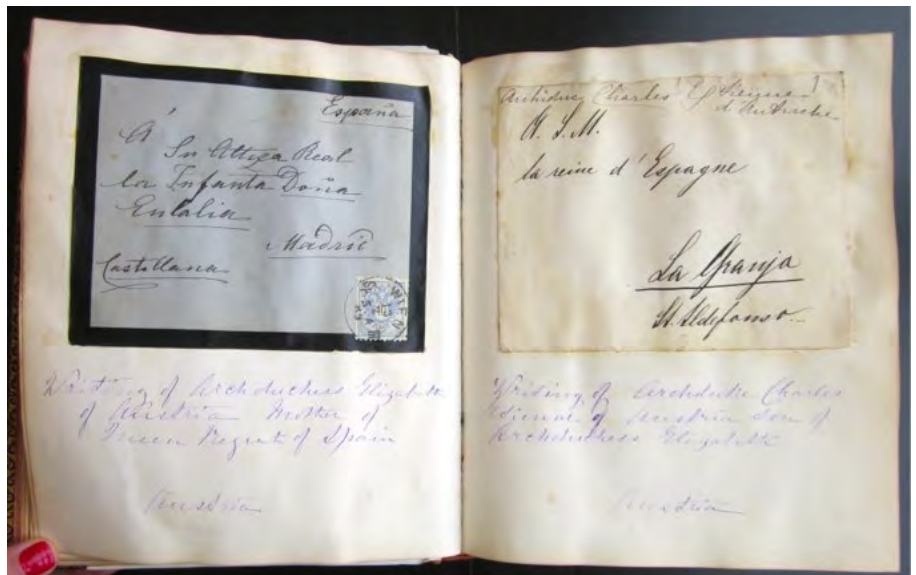 España
A'
Su Alteza Real
la Infanta Doña
Eulalia
Madrid
Castellana
WIEN
Writing of Archduchess Elizabeth
of Austria Mother of
Queen Regent of Spain
Austria
Archiduc Charles Etienne
d'Autriche
A. S. M.
la reine d'Espagne
La Granja
St. Ildefonso
Writing of Archduke Charles
Etienne of Austria son of
Archduchess Elizabeth
Austria